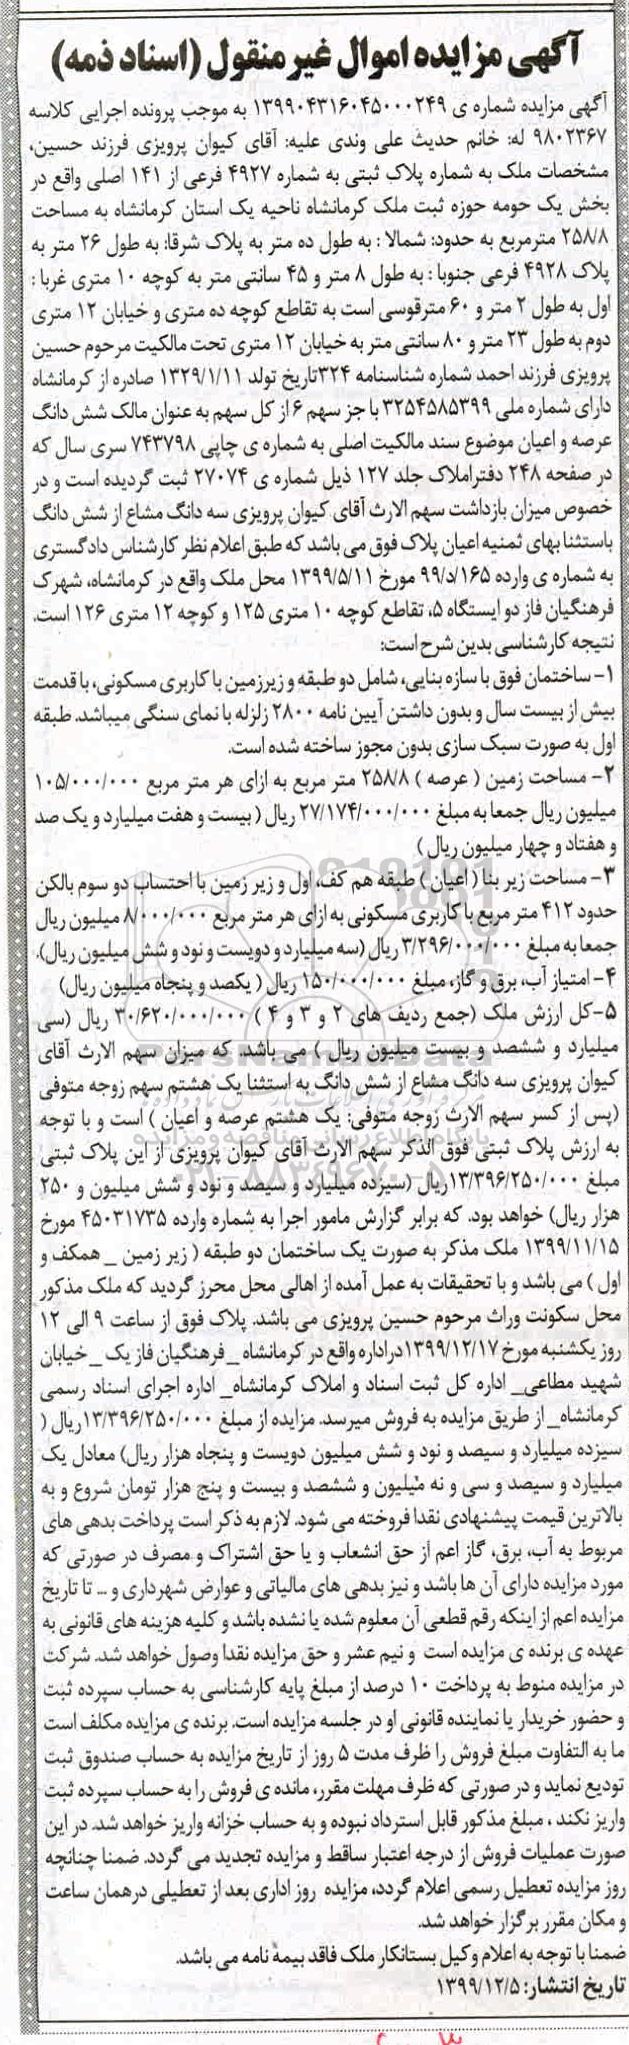 آگهی مزایده اموال غیر منقول (اسناد ذمه)
آگهی مزایده شماره ی ۱۳۹۹۰۴۳۱۶۰۴۵۰۰۰۲۴۹ به موجب پرونده اجرایی کلاسه
۹۸۰۲۳۶۷ له: خانم حدیث علی وندی علیه: آقای کیوان پرویزی فرزند حسین،
مشخصات ملک به شماره پلاک ثبتی به شماره ۴۹۲۷ فرعی از ۱۴۱ اصلی واقع در
بخش یک حومه حوزه ثبت ملک کرمانشاه ناحیه یک استان کرمانشاه به مساحت
۲۵۸/۸ مترمربع به حدود: شمالا : به طول ده متر به پلاک شرقا: به طول ۲۶ متر به
پلاک ۴۹۲۸ فرعی جنوبا : به طول ۸ متر و ۴۵ سانتی متر به کوچه ۱۰ متری غربا :
اول به طول ۲ متر و ۶۰ مترقوسی است به تقاطع کوچه ده متری و خیابان ۱۲ متری
دوم به طول ۲۳ متر و ۸۰ سانتی متر به خیابان ۱۲ متری تحت مالکیت مرحوم حسین
پرویزی فرزند احمد شماره شناسنامه ۳۲۴تاریخ تولد ۱۳۲۹/۱/۱۱ صادره از کرمانشاه
دارای شماره ملی ۳۲۵۴۵۸۵۳۹۹ با جز سهم ۶ از کل سهم به عنوان مالک شش دانگ
عرصه و اعیان موضوع سند مالکیت اصلی به شماره ی چاپی ۷۴۳۷۹۸ سری سال که
در صفحه ۲۴۸ دفتراملاک جلد ۱۲۷ ذیل شماره ی ۲۷۰۷۴ ثبت گردیده است و در
خصوص میزان بازداشت سهم الارث آقای کیوان پرویزی سه دانگ مشاع از شش دانگ
باستثنا بهای ثمنیه اعیان پلاک فوق می باشد که طبق اعلام نظر کارشناس دادگستری
به شماره ی وارده ۱۶۵/د/۹۹ مورخ ۱۳۹۹/۵/۱۱ محل ملک واقع در کرمانشاه، شهرک
فرهنگیان فاز دو ایستگاه ۵، تقاطع کوچه ۱۰ متری ۱۲۵ و کوچه ۱۲ متری ۱۲۶ است.
نتیجه کارشناسی بدین شرح است:
۱- ساختمان فوق با سازه بنایی، شامل دو طبقه و زیرزمین با کاربری مسکونی، با قدمت
بیش از بیست سال و بدون داشتن آیین نامه ۲۸۰۰ زلزله با نمای سنگی میباشد. طبقه
اول به صورت سبک سازی بدون مجوز ساخته شده است.
۲- مساحت زمین ( عرصه ) ۲۵۸/۸ متر مربع به ازای هر متر مربع ۱۰۵/۰۰۰/۰۰۰
میلیون ریال جمعا به مبلغ ۲۷/۱۷۴/۰۰۰/۰۰۰ ریال ( بیست و هفت میلیارد و یک صد
و هفتاد و چهار میلیون ریال )
۳- مساحت زیر بنا ( اعیان ) طبقه هم کف، اول و زیر زمین با احتساب دو سوم بالکن
حدود ۴۱۲ متر مربع با کاربری مسکونی به ازای هر متر مربع ۸/۰۰۰/۰۰۰ میلیون ریال
جمعا به مبلغ ۳/۲۹۶/۰۰۰/۰۰۰ ریال (سه میلیارد و دویست و نود و شش میلیون ریال).
۴- امتیاز آب، برق و گاز، مبلغ ۱۵۰/۰۰۰/۰۰۰ ریال ( یکصد و پنجاه میلیون ریال)
۵-کل ارزش ملک (جمع ردیف های ۲ و ۳ و ۴ ) ۳۰/۶۲۰/۰۰۰/۰۰۰ ریال (سی
میلیارد و ششصد و بیست میلیون ریال ) می باشد. که میزان سهم الارث آقای
کیوان پرویزی سه دانگ مشاع از شش دانگ به استثنا یک هشتم سهم زوجه متوفی
(پس از کسر سهم الارث زوجه متوفی: یک هشتم عرصه و اعیان ) است و با توجه
به ارزش پلاک ثبتی فوق الذکر سهم الارث آقای کیوان پرویزی از این پلاک ثبتی
مبلغ ۱۳/۳۹۶/۲۵۰/۰۰۰ریال (سیزده میلیارد و سیصد و نود و شش میلیون و ۲۵۰
هزار ریال) خواهد بود. که برابر گزارش مامور اجرا به شماره وارده ۴۵۰۳۱۷۳۵ مورخ
۱۳۹۹/۱۱/۱۵ ملک مذکر به صورت یک ساختمان دو طبقه ( زیر زمین _ همکف و
اول ) می باشد و با تحقیقات به عمل آمده از اهالی محل محرز گردید که ملک مذکور
محل سکونت وراث مرحوم حسین پرویزی می باشد. پلاک فوق از ساعت ۹ الی ۱۲
روز یکشنبه مورخ ۱۳۹۹/۱۲/۱۷دراداره واقع در کرمانشاه _ فرهنگیان فاز یک _ خیابان
شهید مطاعی_ اداره کل ثبت اسناد و املاک کرمانشاه_ اداره اجرای اسناد رسمی
کرمانشاه_ از طریق مزایده به فروش میرسد. مزایده از مبلغ ۱۳/۳۹۶/۲۵۰/۰۰۰ریال (
سیزده میلیارد و سیصد و نود و شش میلیون دویست و پنجاه هزار ریال) معادل یک
میلیارد و سیصد و سی و نه میلیون و ششصد و بیست و پنج هزار تومان شروع و به
بالاترین قیمت پیشنهادی نقدا فروخته می شود. لازم به ذکر است پرداخت بدهی های
مربوط به آب، برق، گاز اعم از حق انشعاب و یا حق اشتراک و مصرف در صورتی که
مورد مزایده دارای آن ها باشد و نیز بدهی های مالیاتی و عوارض شهرداری و ... تا تاریخ
مزایده اعم از اینکه رقم قطعی آن معلوم شده یا نشده باشد و کلیه هزینه های قانونی به
عهده ی برنده ی مزایده است و نیم عشر و حق مزایده نقدا وصول خواهد شد. شرکت
در مزایده منوط به پرداخت ۱۰ درصد از مبلغ پایه کارشناسی به حساب سپرده ثبت
و حضور خریدار یا نماینده قانونی او در جلسه مزایده است. برنده ی مزایده مکلف است
ما به التفاوت مبلغ فروش را ظرف مدت ۵ روز از تاریخ مزایده به حساب صندوق ثبت
تودیع نماید و در صورتی که ظرف مهلت مقرر، مانده ی فروش را به حساب سپرده ثبت
واریز نکند ، مبلغ مذکور قابل استرداد نبوده و به حساب خزانه واریز خواهد شد. در این
صورت عملیات فروش از درجه اعتبار ساقط و مزایده تجدید می گردد. ضمنا چنانچه
روز مزایده تعطیل رسمی اعلام گردد، مزایده روز اداری بعد از تعطیلی درهمان ساعت
و مکان مقرر برگزار خواهد شد.
ضمنا با توجه به اعلام وکیل بستانکار ملک فاقد بیمه نامه می باشد.
تاریخ انتشار: ۱۳۹۹/۱۲/۵